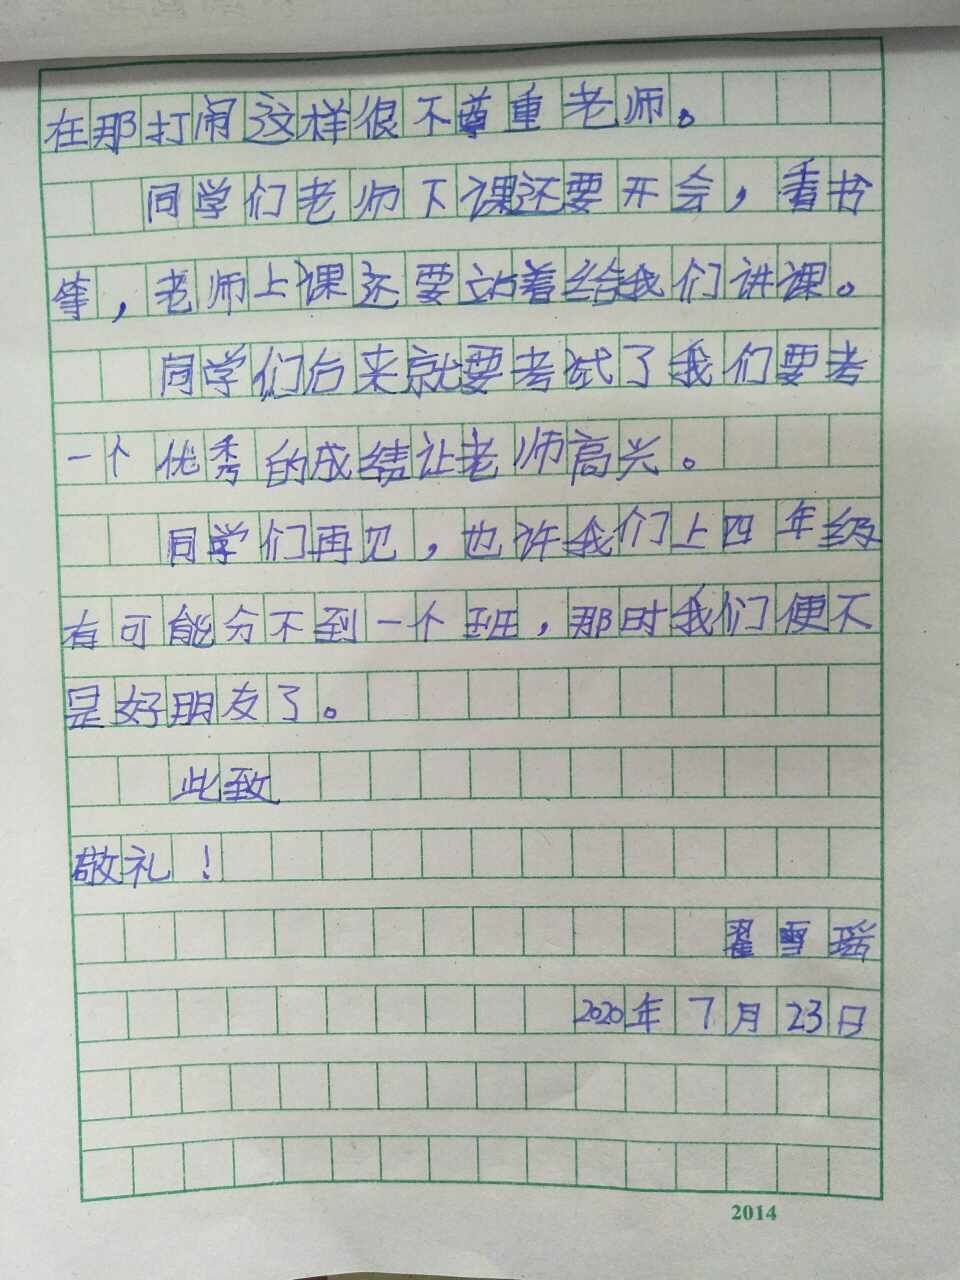 在那打闹这样很不尊重老师。
同学们老师下课还要开会，看书
等，老师上课还要站着给我们讲课。
同学们后来就要考试了我们要考
一个优秀的成绩让老师高兴。
同学们再见，也许我们上四年级
有可能分不到一个班，那时我们便不
是好朋友了。
此致
敬礼！
翟雪瑶
2020年7月23日
2014